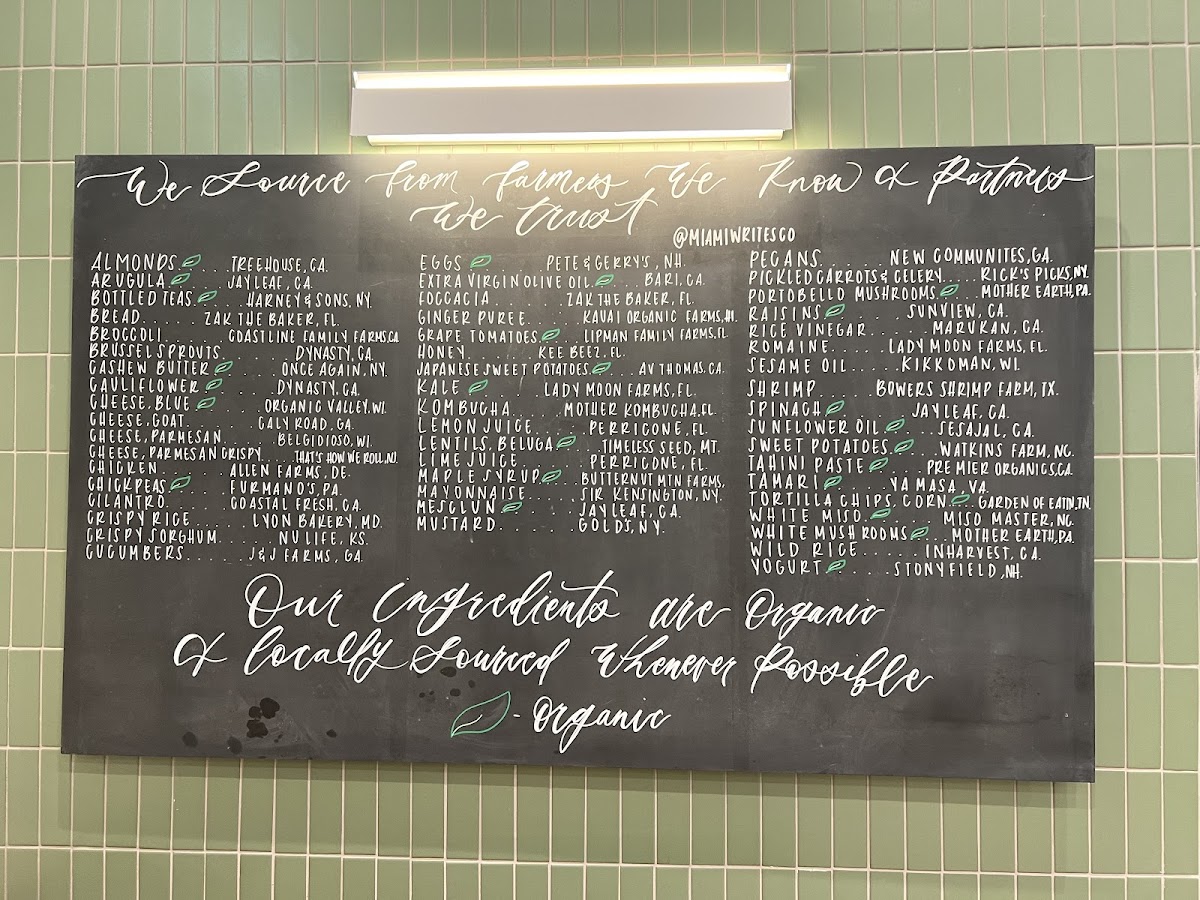 We Source from farmers We Know & Partners
We trust
@MIAMIWRITESCO
ALMONDS....TREEHOUSE, CA.
ARUGULA....JAYLEAF, CA.
BOTTLED TEAS....HARNEY & SONS, NY.
BREAD....ZAK THE BAKER, FL.
BROCCOLI....COASTLINE FAMILY FARMS, CA
BRUSSEL SPROUTS....DYNASTY, CA.
CASHEW BUTTER....ONCE AGAIN, NY.
CAULIFLOWER....DYNASTY, CA.
CHEESE, BLUE....ORGANIC VALLEY, WI.
CHEESE, GOAT....CALY ROAD, GA.
CHEESE, PARMESAN....BELGIDIOSO, WI.
CHEESE, PARMESAN CRISPY....THAT'S HOW WE ROLL, NJ.
CHICKEN....ALLEN FARMS, DE.
CHICKPEAS....FURMANO'S, PA.
CILANTRO....COASTAL FRESH, CA.
CRISPY RICE....LYON BAKERY, MD.
CRISPY SORGHUM....NU LIFE, KS.
CUCUMBERS....J&J FARMS, GA.
EGGS....PETE & GERRY'S, NH.
EXTRA VIRGIN OLIVE OIL....BARI, CA.
FOCCACIA....ZAK THE BAKER, FL.
GINGER PUREE....KAUAI ORGANIC FARMS, HI.
GRAPE TOMATOES....LIPMAN FAMILY FARMS, FL
HONEY....KEE BEEZ, FL.
JAPANESE SWEET POTATOES....AV THOMAS, CA.
KALE....LADY MOON FARMS, FL.
KOMBUCHA....MOTHER KOMBUCHA, FL.
LEMON JUICE....PERRICONE, FL.
LENTILS, BELUGA....TIMELESS SEED, MT.
LIME JUICE....PERRICONE, FL.
MAPLE SYRUP....BUTTERNUT MTN FARMS,
MAYONNAISE....SIR KENSINGTON, NY.
MESCLUN....JAYLEAF, CA.
MUSTARD....GOLDS, NY.
PECANS....NEW COMMUNITES, GA.
PICKLED CARROTS & CELERY....RICK'S PICKS, NY.
PORTOBELLO MUSHROOMS....MOTHER EARTH, PA.
RAISINS....SUNVIEW, CA.
RICE VINEGAR....MARUKAN, CA.
ROMAINE....LADY MOON FARMS, FL.
SESAME OIL....KIKKOMAN, WI.
SHRIMP....BOWERS SHRIMP FARM, TX.
SPINACH....JAYLEAF, CA.
SUNFLOWER OIL....SESAJAL, CA.
SWEET POTATOES....WATKINS FARM, NC.
TAHINI PASTE....PREMIER ORGANICS, CA.
TAMARI....YAMASA, VA.
TORTILLA CHIPS, CORN....GARDEN OF EATIN, TN.
WHITE MISO....MISO MASTER, NC.
WHITE MUSHROOMS....MOTHER EARTH, PA.
WILD RICE....INHARVEST, CA.
YOGURT....STONYFIELD, NH.
Our ingredients are Organic
& locally Sourced Whenever Possible
- Organic